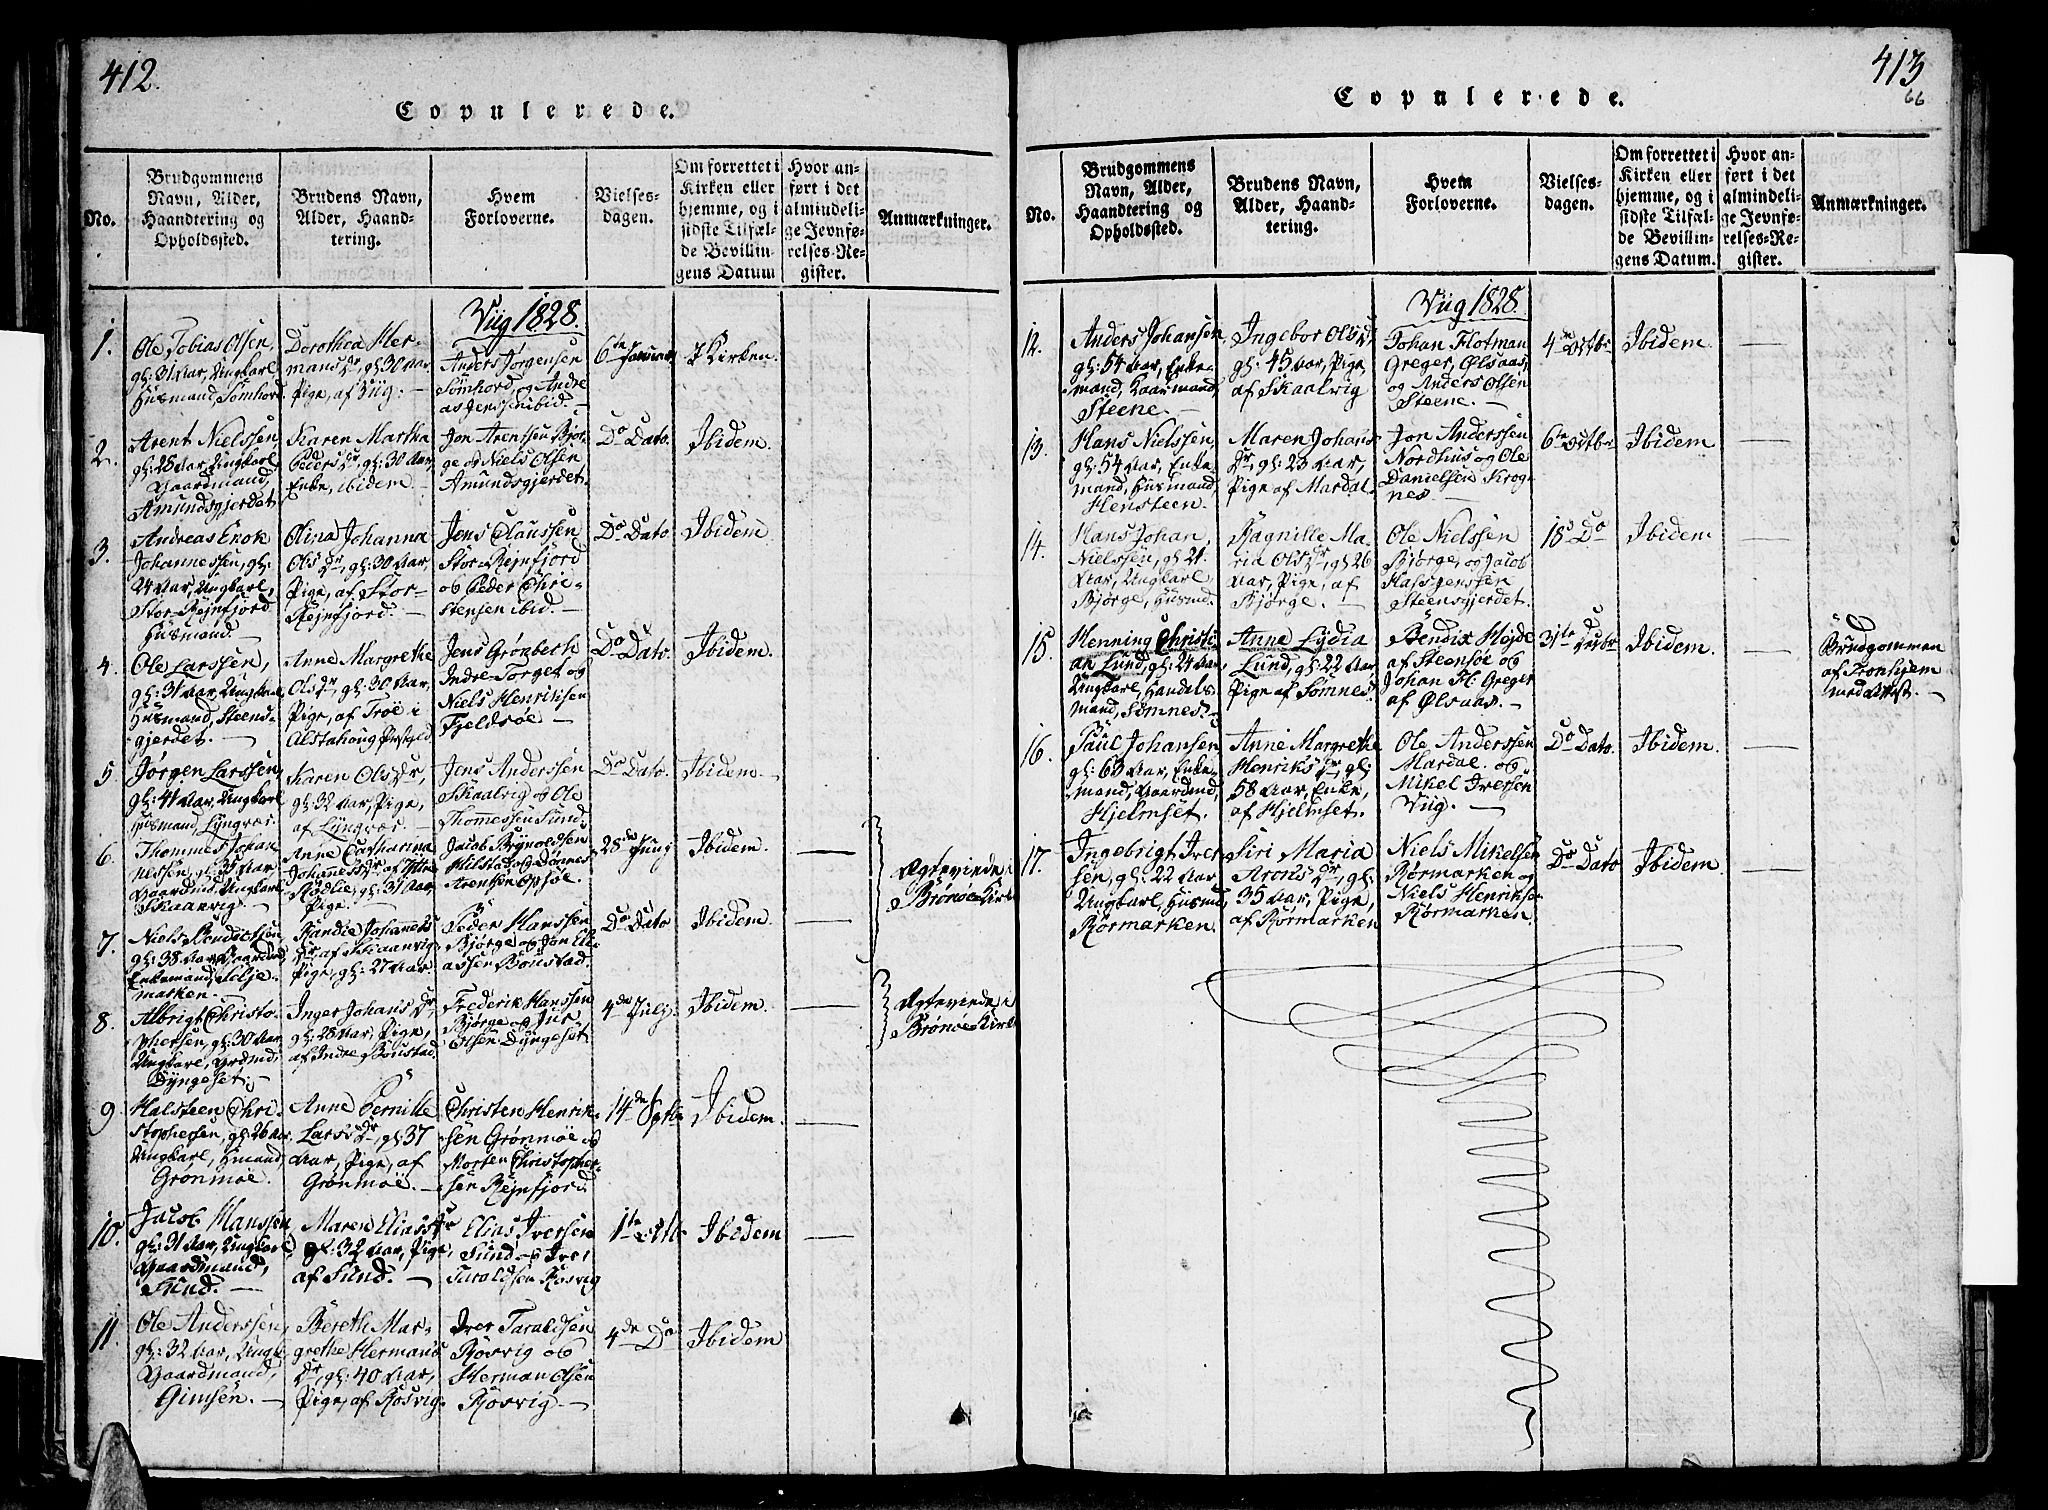 412.
Copulerede.
No.
Brudgommens
Navn, Alder,
Haandtering og
Opholdssted.
Brudens Navn,
Alder, Haand-
tering.
Hvem
Forloverne.
Vielses-
dagen.
Om forrettet i
Kirken eller
hjemme, og i
sidste Tilfæl-
de Bevillin-
gens Datum
Hvor an-
ført i det
almindeli-
ge Jevnfø-
relses-Re-
gister.
Anmærkninger.
Viig 1828.
1.
Ole Tobias Olsen,
gl: 31 Aar, Ungkarl
Husmand, Sømhord.
Dorothea Her-
mansdr, gl: 30 Aar
Pige, af Viig: –
Anders Jørgensen
Sømhord, og Andre
as Jenssen ibid. –
6te Januar
I Kirken.
2.
Arent Nielssen
gl: 28 Aar, Ungkarl
Gaardmand,
Amundsgjerdet
Karen Martha
Pedersdr, gl: 30 Aar
Enke, ibidem. –
Jon Arentsen Bjør-
ge og Niels Olsen
Amundsgjerdet.
Do Dato.
Ibidem.
3.
Andreas Enok
Johannessen, gl:
24 Aar, Ungkarl,
Stor-Rejnfjord
Husmand. –
Olina Johanna
Olsdr, gl: 30 Aar,
Pige, af Stor-
Rejnfjord. –
Jens Claussen
Stor-Rejnfjord
og Peder Chri-
stensen ibid. –
Do Dato
Ibidem.
4.
Ole Larssen,
gl: 31 Aar, Ungkarl
Husmand, Steens-
gjerdet. –
Anne Margrethe
Olsdr, gl: 30 Aar,
Pige, af Troe i
Alstahoug Præstgld
Jens Grønbech
Indre-Torget og
Niels Henrikssen
Fjeldsøe –
Do Dato.
Ibidem.
5.
Jørgen Larssen,
gl: 41 Aar, Ungkarl
Husmand, Lyngvær.
Karen Olsdr,
gl: 32 Aar, Pige,
af Lyngvær. –
Jens Anderssen
Skaalvig og Ole
Thomessen Sund.
Do Dato.
Ibidem.
6.
Thommes Johan
nessen, gl: 35 Aar
Gaardmd, Ungkarl
Skaanvig –
Anne Catharina
Johannesdr af Yttre
Rødlie, gl: 31 Aar
Pige. –
Jacob Brynoldsen
Hilstad og Hannes
Arentsen Opsøe.
28de Junj
Ibidem.
–
Ægteviede i
Brønøe Kirk
7.
Niels Bendictsen
gl: 38 Aar, Gaardmd
Enkemand, Selje
marken. –
Randie Johannes
dr, af Skaanvig
Pige, gl: 27 Aar.
Peder Hanssen
Bjørge og Jon Eli-
assen Bønstad.
Do Dato
Ibidem.
–
8.
Albrigt Christo-
phersen, gl: 30 Aar
Ungkarl, Grdmd,
Dyngeset. –
Inger Johansdr,
gl: 28 Aar, Pige,
af Indre Bønstad.
Frederik Hanssen
Bjørge og Jur
Olsen Dyngeset.
4de Julj.
Ibidem.
–
Ægteviede i
Brønøe Kirk
9.
Halsteen Chri-
stophersen, gl: 26 Aar,
Ungkarl, Hmand,
Grønmøe.
Anne Pernille
Larsdr, gl: 37
Aar, Pige, af
Grønmøe. –
Christen Henrik-
sen Grønmøe og
Morten Christopher-
sen Rejnfjord.
14de Sptbr
Ibidem.
–
10.
Jacob Hanssen
gl: 31 Aar, Ungkarl
Gaardmand,
Sund. –
Maren Eliasdr
gl: 32 Aar, Pige,
af Sund. –
Elias Iversen
Sund og Iver
Taraldsen Rosvig
1te Octbr
Ibidem
–
11.
Ole Anderssen,
gl: 32 Aar, Ungk:
Gaardmand,
Gimsen. –
Bereth Mar-
grethe Hermans
dr, gl: 40 Aar,
Pige, af Rosvig.
Iver Taraldsen
Rosvig og
Herman Olsen
Rosvig. –
4de Do
Ibidem
413
66
Copulerede.
No.
Brudgommens
Navn, Alder,
Haandtering og
Opholdssted.
Brudens Navn,
Alder, Haand-
tering.
Hvem
Forloverne.
Vielses-
dagen.
Om forrettet i
Kirken eller
hjemme, og i
sidste Tilfæl-
de Bevillin-
gens Datum.
Hvor an-
ført i det
almindeli-
ge Jevnfø-
relses-Re-
gister.
Anmærkninger.
Viig 1828.
12.
Anders Johansen,
gl: 54 Aar, Enke-
mand, Gaardmand,
Steene. –
Ingebor Olsdr
gl: 45 Aar, Pige,
af Skaalvig
Johan Flotman
Greger, Ølsaas,
og Anders Olsen
Steene. –
4de Octbr
Ibidem.
–
13.
Hans Nielssen,
gl: 54 Aar, Enke-
mand, Husmand,
Hensteen.
Maren Johans
dr, gl: 23 Aar,
Pige af Mardal.
Jon Anderssen
Nordhus og Ole
Danielsen Krog-
nes –
6te Octbr
Ibidem.
–
14.
Hans Johan
Nielssen, gl: 21
Aar, Ungkarl,
Bjørge, Husmd.
Ragnille Ma-
ria Olsdr, gl: 26
Aar, Pige, af
Bjørge. –
Ole Nielssen
Bjørge, og Jacob
Hansjensen
Steensgjerdet.
18de Do
Ibidem.
–
15.
Henning Christi-
an Lund, gl: 24 Aar,
Ungkarl, Handels-
mand, Sømnes. –
Anne Lydia
Lund, gl: 22 Aar
Pige af Sømnes.
Bendix Hejde
af Steensøe og
Johan Fl: Greger
af Ølsaas. –
31te Octbr
Ibidem.
–
Brudgommen
af Tronhjem
med Attest. –
16.
Paul Johansen
gl: 63 Aar, Enke-
mand, Gaardmd,
Hjelmset.
Anne Margrethe
Henriksdr, gl:
58 Aar, Enke,
af Hjelmset.
Ole Anderssen
Mardal og
Mikel Iversen
Viig. –
Do Dato.
Ibidem.
–
17.
Ingebrigt Iver
sen, gl: 22 Aar
Ungkarl, Husmd,
Rørmarken.
Siri Maria
Aronsdr, gl:
35 Aar, Pige,
af Rørmarken
Niels Mikelsen
Rørmarken og
Niels Henriksen
Rørmarken.
Do Dato
Ibidem.
–